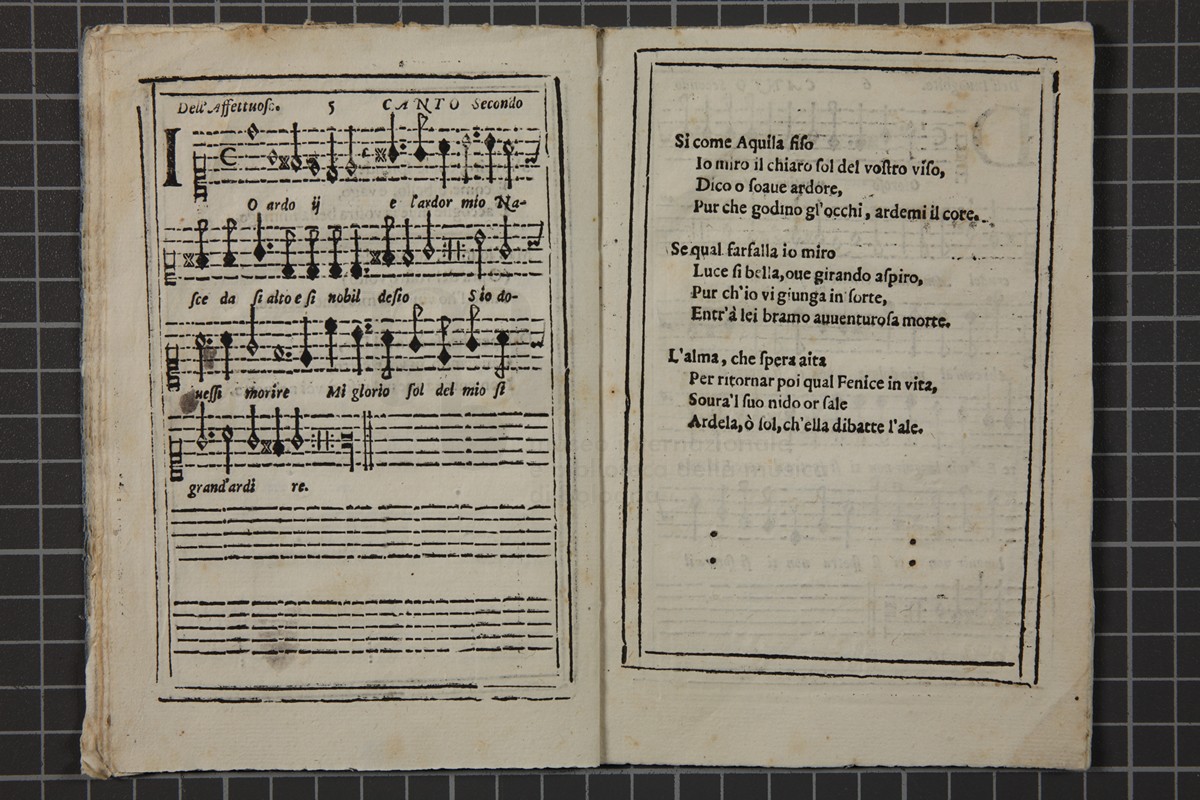 Dell'Affettuoso. 5 CANTO Secondo
I
O ardo ij e l'ardor mio Na-
sce da si alto e si nobil desio S'io do-
uessi morire Mi glorio sol del mio si
grand'ardi re.
Si come Aquila fiso
Io miro il chiaro sol del vostro viso,
Dico o soaue ardore,
Pur che godino gl'occhi, ardemi il core.
Se qual farfalla io miro
Luce si bella, oue girando aspiro,
Pur ch'io vi giunga in sorte,
Entr'à lei bramo auuenturosa morte.
L'alma, che spera aita
Per ritornar poi qual Fenice in vita,
Soura'l suo nido or sale
Ardela, ò sol, ch'ella dibatte l'ale.